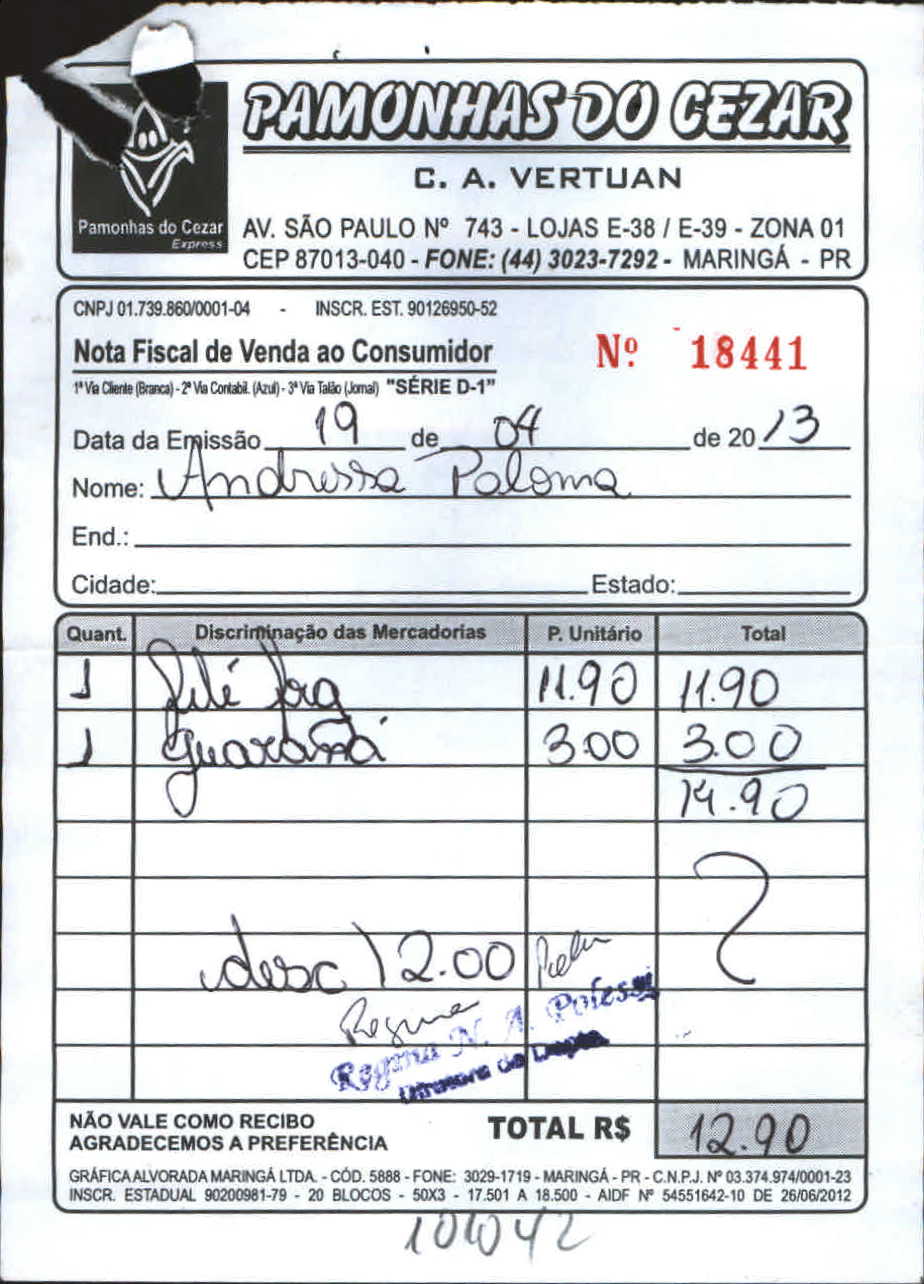 PAMONHAS DO CEZAR
C. A. VERTUAN
Pamonhas do Cezar
Express
AV. SÃO PAULO Nº 743 - LOJAS E-38 / E-39 - ZONA 01
CEP 87013-040 - FONE: (44) 3023-7292 - MARINGÁ - PR
CNPJ 01.739.860/0001-04 - INSCR. EST. 90126950-52
Nota Fiscal de Venda ao Consumidor Nº 18441
1ª Via Cliente (Branca) - 2ª Via Contabil. (Azul) - 3ª Via Talão (Jornal) "SÉRIE D-1"
Data da Emissão 19 de 04 de 2013
Nome: Andressa Paloma
End.:
Cidade: Estado:
Quant. Discriminação das Mercadorias P. Unitário Total
1 Filé 11.90 11.90
1 Guaraná 3.00 3.00
14.90
desc 2.00
Regina
Regina N. A.
NÃO VALE COMO RECIBO
AGRADECEMOS A PREFERÊNCIA
TOTAL R$ 12.90
GRÁFICA ALVORADA MARINGÁ LTDA. - CÓD. 5888 - FONE: 3029-1719 - MARINGÁ - PR - C.N.P.J. Nº 03.374.974/0001-23
INSCR. ESTADUAL 90200981-79 - 20 BLOCOS - 50X3 - 17.501 A 18.500 - AIDF Nº 54551642-10 DE 26/06/2012